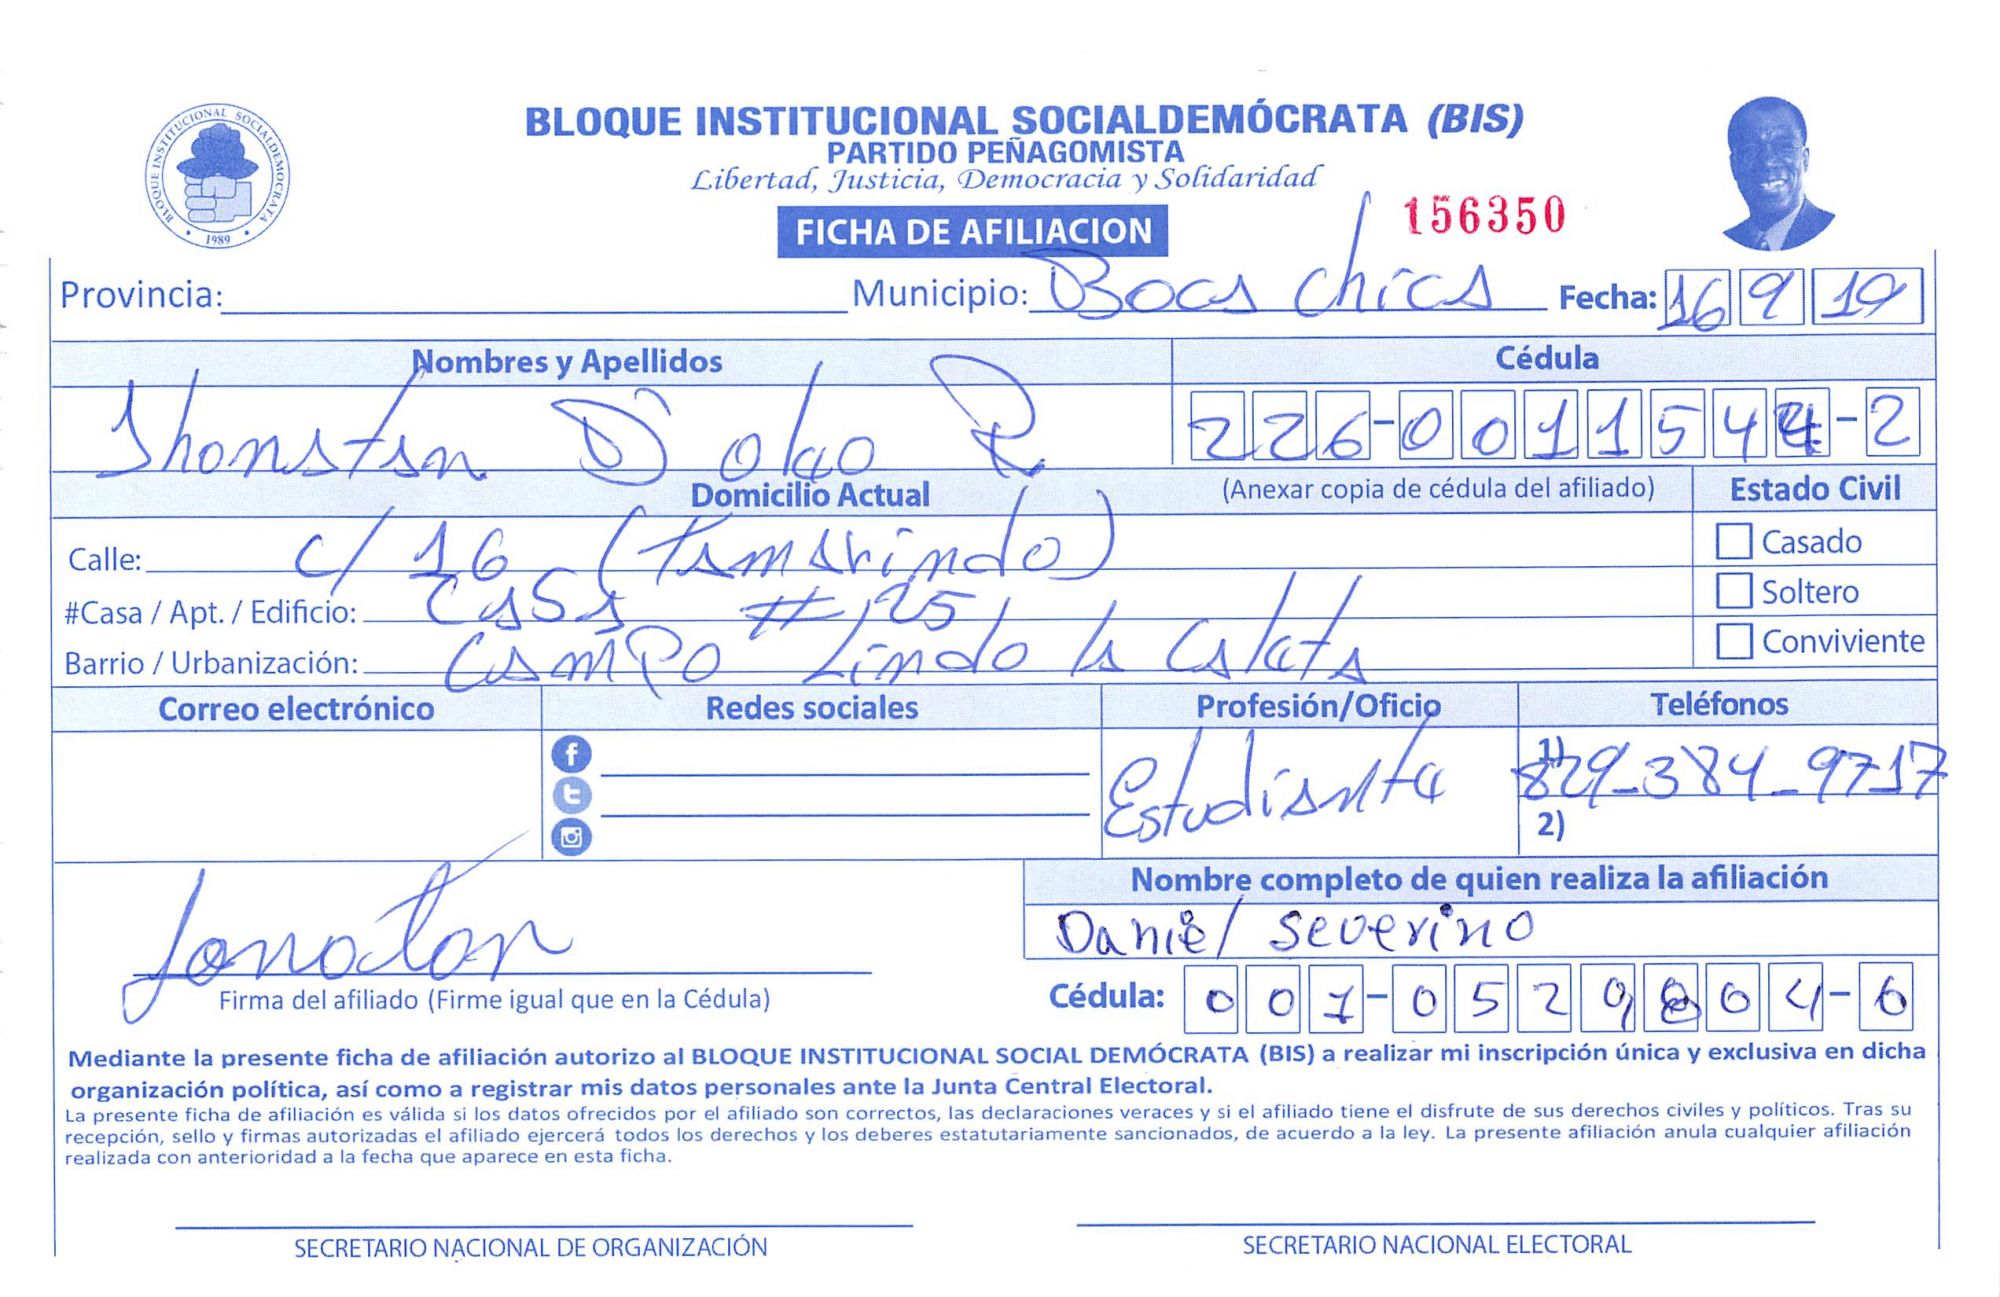 BLOQUE INSTITUCIONAL SOCIALDEMÓCRATA (BIS)
PARTIDO PEÑAGOMISTA
Libertad, Justicia, Democracia y Solidaridad
BLOQUE INSTITUCIONAL SOCIALDEMOCRATA
1989
FICHA DE AFILIACION
156350
Provincia: Municipio: Boca chica Fecha: 16 9 19
Nombres y Apellidos Cédula
Jhonstan D' R 226-0011544-2
Domicilio Actual (Anexar copia de cédula del afiliado) Estado Civil
Calle: c/ 16 (Tamarindo) Casado
#Casa / Apt. / Edificio: Casa # 25 Soltero
Barrio / Urbanización: Campo Lindo la Caleta Conviviente
Correo electrónico Redes sociales Profesión/Oficio Teléfonos
Estudiante 1) 829-384-9717
2)
Nombre completo de quien realiza la afiliación
Jonatan Daniel Severino
Firma del afiliado (Firme igual que en la Cédula) Cédula: 001-0529804-6
Mediante la presente ficha de afiliación autorizo al BLOQUE INSTITUCIONAL SOCIAL DEMÓCRATA (BIS) a realizar mi inscripción única y exclusiva en dicha
organización política, así como a registrar mis datos personales ante la Junta Central Electoral.
La presente ficha de afiliación es válida si los datos ofrecidos por el afiliado son correctos, las declaraciones veraces y si el afiliado tiene el disfrute de sus derechos civiles y políticos. Tras su
recepción, sello y firmas autorizadas el afiliado ejercerá todos los derechos y los deberes estatutariamente sancionados, de acuerdo a la ley. La presente afiliación anula cualquier afiliación
realizada con anterioridad a la fecha que aparece en esta ficha.
SECRETARIO NACIONAL DE ORGANIZACIÓN SECRETARIO NACIONAL ELECTORAL